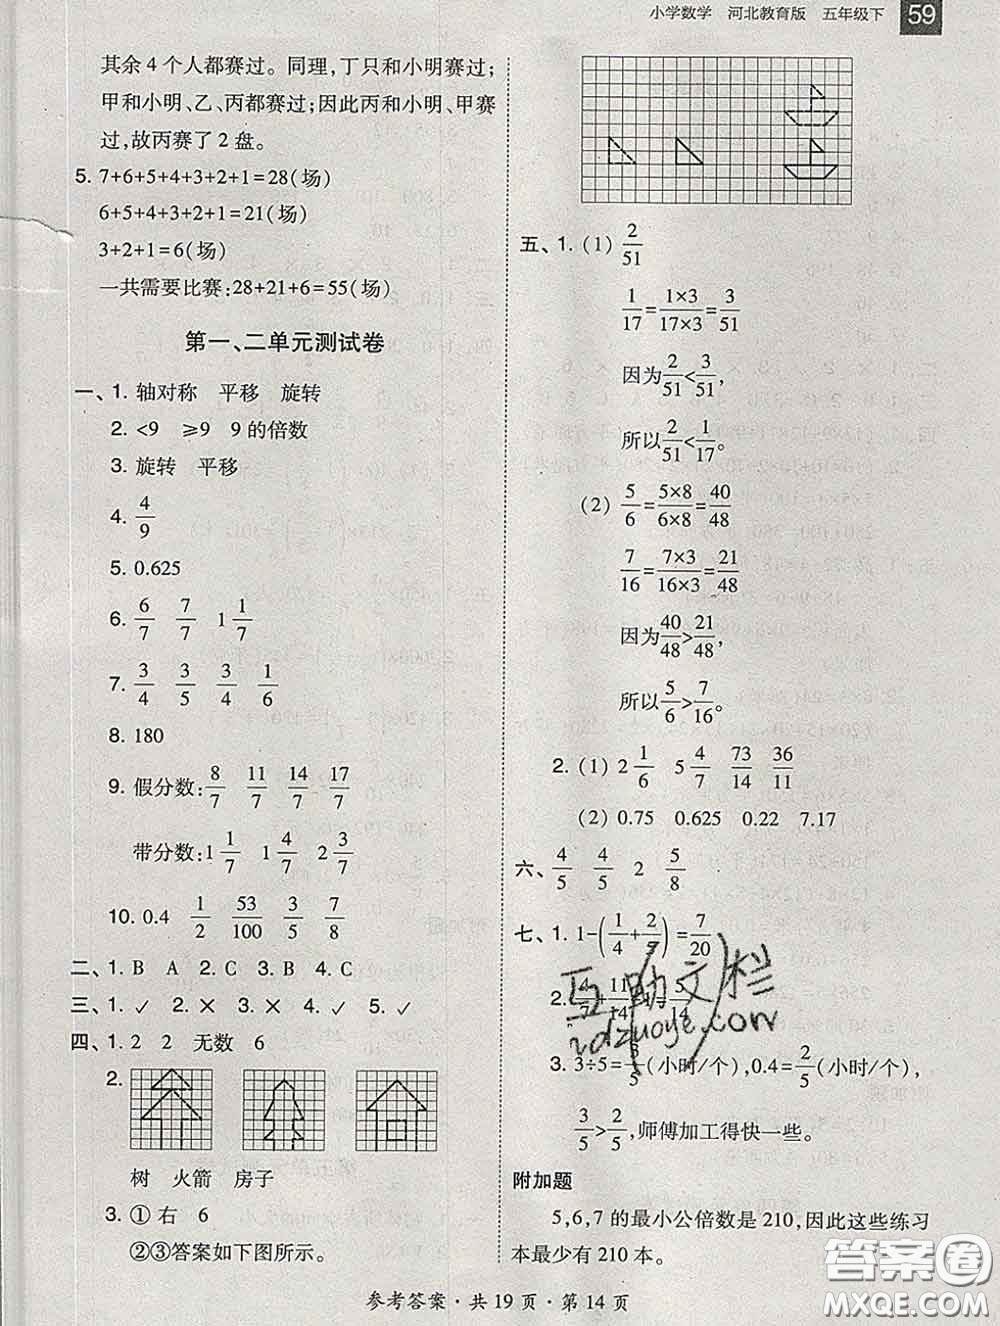 小学数学 河北教育版 五年级下 59
其余 4 个人都赛过。同理，丁只和小明赛过；
甲和小明、乙、丙都赛过；因此丙和小明、甲赛
过，故丙赛了 2 盘。
5. 7+6+5+4+3+2+1=28(场)
6+5+4+3+2+1=21(场)
3+2+1=6(场)
一共需要比赛：28+21+6=55(场)
第一、二单元测试卷
一、1. 轴对称 平移 旋转
2. <9 ≥9 9 的倍数
3. 旋转 平移
4. 4/9
5. 0.625
6. 6/7 7/7 1 1/7
7. 3/4 3/5 3/4 1/6
8. 180
9. 假分数：8/7 11/7 14/7 17/7
带分数：1 1/7 1 4/7 2 3/7
10. 0.4 1/2 53/100 3/5 7/8
二、1. B A 2. C 3. B 4. C
三、1. ✓ 2. × 3. ✓ 4. ✓ 5. ✓
四、1. 2 2 无数 6
2.
树 火箭 房子
3. ① 右 6
②③答案如下图所示。
五、1. (1) 2/51
1/17=1×3/17×3=3/51
因为2/51<3/51，
所以2/51<1/17。
(2) 5/6=5×8/6×8=40/48
7/16=7×3/16×3=21/48
因为40/48>21/48，
所以5/6>7/16。
2. (1) 2 1/6 5 4/7 73/14 36/11
(2) 0.75 0.625 0.22 7.17
六、4/5 4/5 2 5/8
七、1. 1-(1/4+2/5)=7/20
2.
3. 3÷5=3/5(小时/个)，0.4=2/5(小时/个)
3/5>2/5，师傅加工得快一些。
附加题
5,6,7 的最小公倍数是 210，因此这些练习
本最少有 210 本。
参考答案·共 19 页·第 14 页
互助文栏
idzuoye.com
答案圈
MXQE.COM